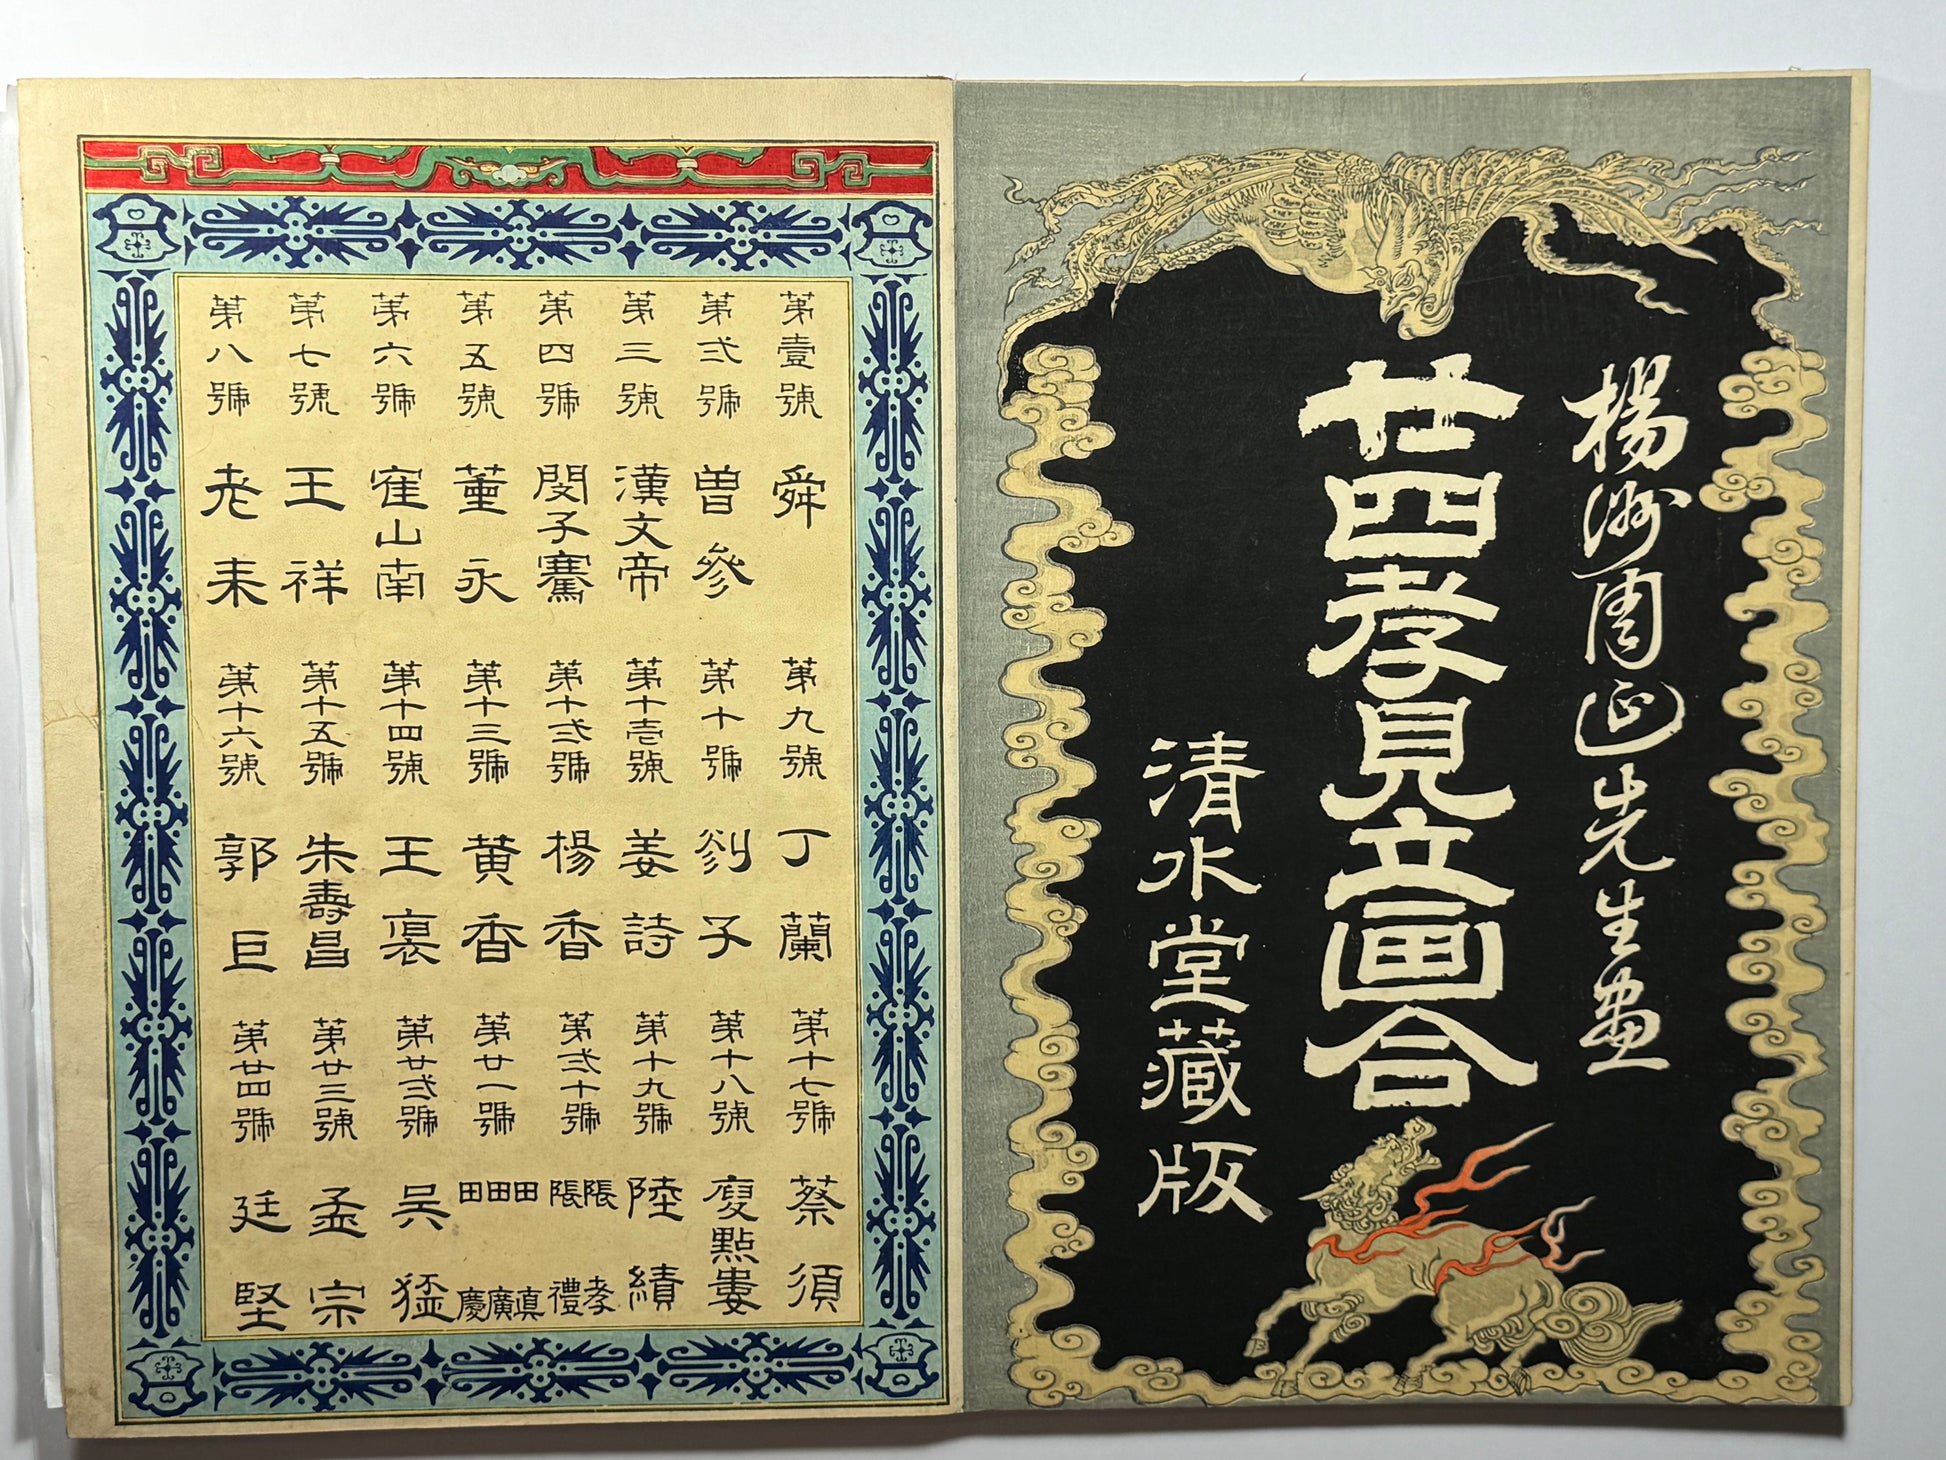 楊洲周延先生畫
廿四孝見立画合
清水堂藏版
第壹號 舜
第弍號 曽參
第三號 漢文帝
第四號 閔子騫
第五號 董永
第六號 寉山南
第七號 王祥
第八號 老耒
第九號 丁蘭
第十號 剡子
第十壱號 姜詩
第十弍號 楊香
第十三號 黄香
第十四號 王裒
第十五號 朱壽昌
第十六號 郭巨
第十七號 蔡須
第十八號 庾點婁
第十九號 陸績
第弍十號 張孝 張禮
第廿一號 田真 田廣 田慶
第廿弍號 吳猛
第廿三號 孟宗
第廿四號 廷堅